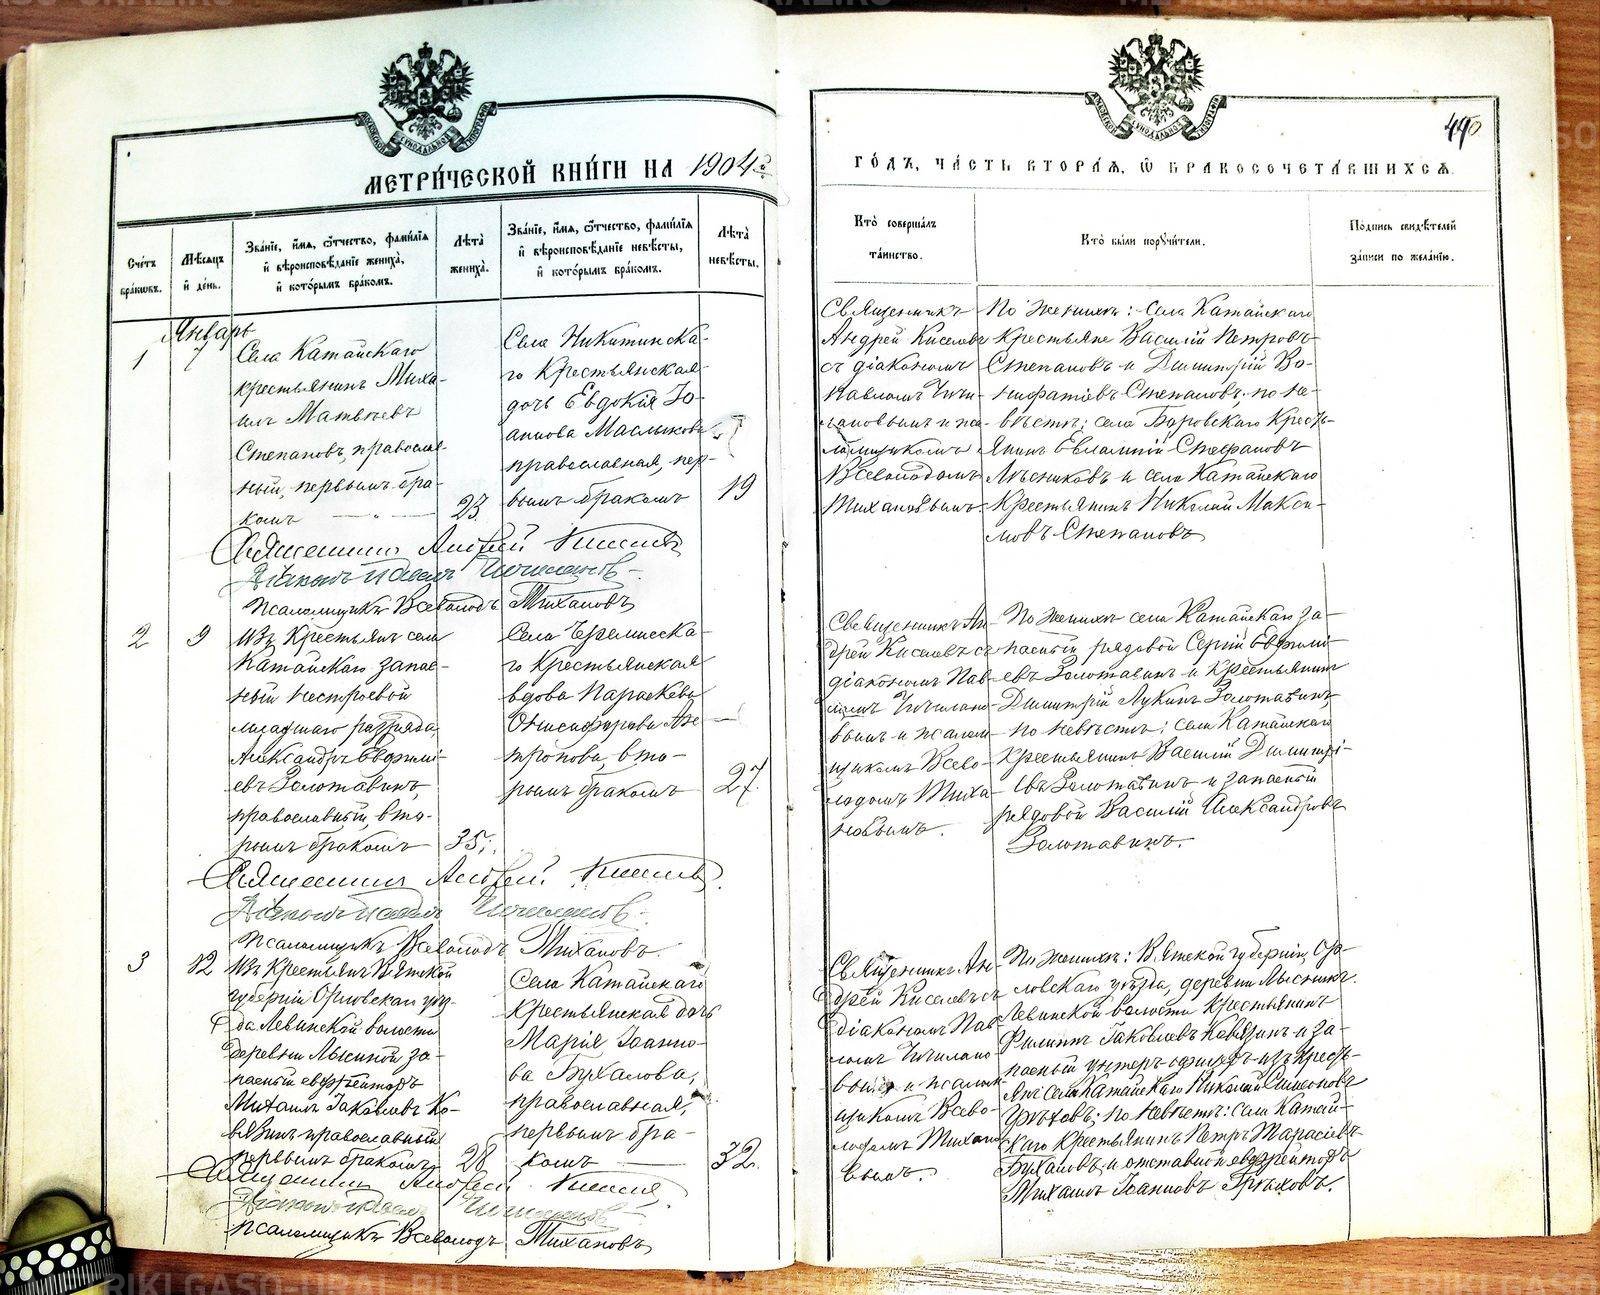 МЕТРИ́ЧЕСКОЙ КНИ́ГИ НА 1904 го
ГО́ДЪ, ЧА́СТЬ ВТОРА́Я, Ѽ БРАКОСОЧЕТА́ВШИХСЯ.
490
Сче́тъ бра́ковъ.
Мѣ́сяцъ и҆ де́нь.
Зва́нїе, и҆́мя, ѻ҆́тчество, фами́лїя и҆ вѣроисповѣ́данїе жениха̀, и҆ кото́рымъ бра́комъ.
Лѣ́та жениха̀.
Зва́нїе, и҆́мя, ѻ҆́тчество, фами́лїя и҆ вѣроисповѣ́данїе невѣ́сты, и҆ кото́рымъ бра́комъ.
Лѣ́та невѣ́сты.
Кто̀ соверша́лъ та́инство.
Кто̀ бы́ли поручи́тели.
По́дпись свидѣ́телей за́писи по жела́нїю.
Январь
1
7
Села Катайскаго
крестьянинъ Миха-
илъ Матвѣевъ
Степановъ, православ-
ный, первымъ бра-
комъ — „ —
23.
Села Никитинска-
го крестьянская
дочь Евдокія Іо-
аннова Маслыкова
православная, пер-
вымъ бракомъ
19
Священникъ
Андрей Киселевъ
съ діакономъ
Павломъ Чичи-
лановымъ и пса-
ломщикомъ
Всеволодомъ
Тихановымъ.
По женихѣ: села Катайскаго
крестьяне Василій Петровъ
Степановъ и Димитрій Во-
нифатіевъ Степановъ, по не-
вѣстѣ: села Боровскаго кресть-
янинъ Евлампій Стефановъ
Лѣсниковъ и села Катайскаго
крестьянинъ Николай Макси-
мовъ Степановъ
Священникъ Андрей Киселевъ
Діаконъ Павелъ Чичилановъ
Псаломщикъ Всеволодъ Тихановъ
2
9
Изъ крестьянъ села
Катайскаго запас-
ный нестроевой
младшаго разряда,
Александръ Евфимі-
евъ Золотавинъ,
православный, вто-
рымъ бракомъ
35.
Села Черемисска-
го крестьянская
вдова Параскева
Онисифорова Ан-
тропова, вто-
рымъ бракомъ
27.
Священникъ Ан-
дрей Киселевъ съ
діакономъ Пав-
ломъ Чичилано-
вымъ и псалом-
щикомъ Всево-
лодомъ Тиха-
новымъ.
По женихѣ села Катайскаго за-
пасный рядовой Сергій Евфими-
евъ Золотавинъ и крестьянинъ
Димитрій Лукинъ Золотавинъ,
по невѣстѣ: села Катайскаго
крестьянинъ Василій Димитрі-
евъ Золотавинъ и запасный
рядовой Василій Александровъ
Золотавинъ.
Священникъ Андрей Киселевъ.
Діаконъ Павелъ Чичилановъ
Псаломщикъ Всеволодъ Тихановъ.
3
12
Изъ крестьянъ Вятской
губерніи Орловскаго уѣз-
да Левинской волости
деревни Лысиной за-
пасный ефрейторъ
Михаилъ Іаковлевъ Ко-
вязинъ православный
первымъ бракомъ,
28
Села Катайскаго
крестьянская дочь
Марія Іоанно-
ва Бухалова,
православная,
первымъ бра-
комъ —
32.
Священникъ Ан-
дрей Киселевъ съ
діакономъ Пав-
ломъ Чичилано-
вымъ и псалом-
щикомъ Всево-
лодомъ Тихано-
вымъ.
По женихѣ: Вятской губерніи, Ор-
ловскаго уѣзда, деревни Лысинск.
Левинской волости крестьянинъ
Филиппъ Іаковлевъ Ковязинъ и за-
пасный унтеръ-офицеръ изъ кресть-
янъ села Катайскаго Николай Симеоновъ
Грѣховъ; по невѣстѣ: села Катай-
скаго крестьянинъ Петръ Тарасіевъ
Бухаловъ и отставной ефрейторъ
Михаилъ Іоанновъ Грѣховъ.
Священникъ Андрей Киселевъ
Діаконъ Павелъ Чичилановъ
Псаломщикъ Всеволодъ Тихановъ
METRIKI.GASO-URAL.RU